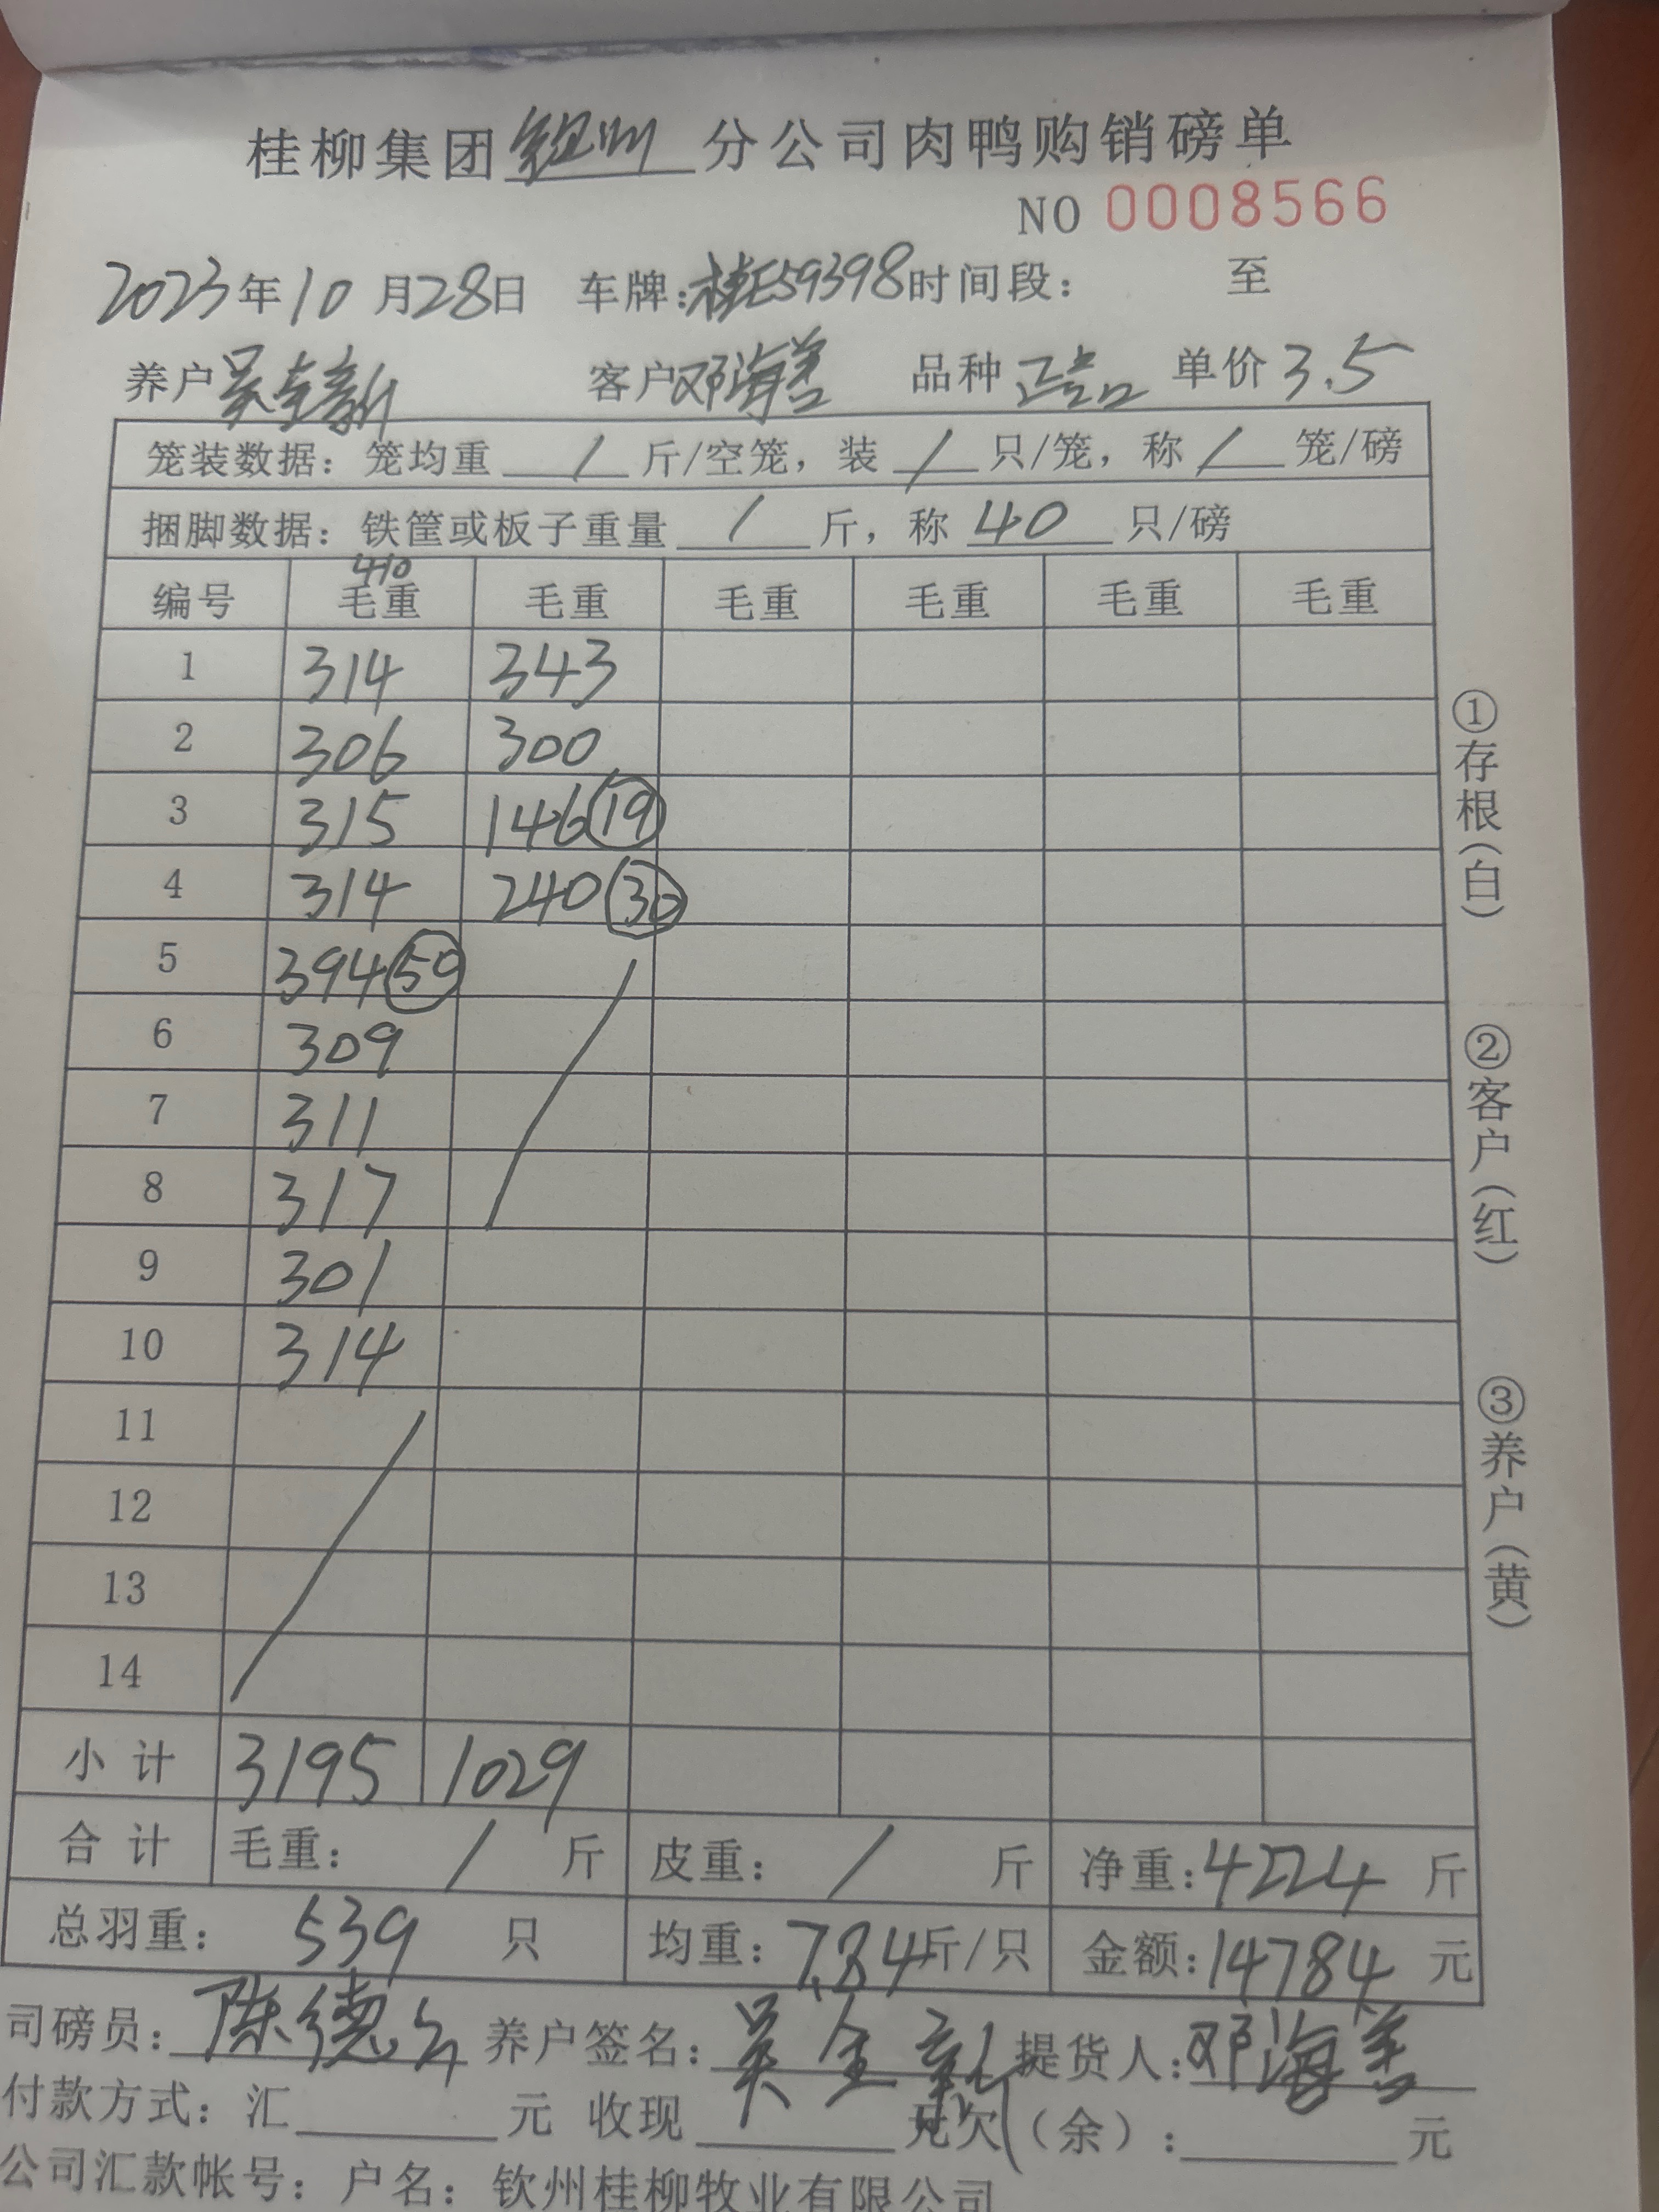 桂柳集团钦州分公司肉鸭购销磅单
NO 0008566
2023年10月28日 车牌:桂E59398时间段: 至
养户吴金新 客户邓海善 品种 单价3.5
笼装数据: 笼均重 / 斤/空笼, 装 / 只/笼, 称 / 笼/磅
捆脚数据: 铁筐或板子重量 / 斤, 称 40 只/磅
410
编号 毛重 毛重 毛重 毛重 毛重 毛重
1 314 343
2 306 300
3 315 146 19
4 314 240 30
5 394 50
6 309
7 311
8 317
9 301
10 314
11
12
13
14
小计 3195 1029
合计 毛重: / 斤 皮重: / 斤 净重:4224 斤
总羽重: 539 只 均重: 7.84斤/只 金额:14784 元
司磅员: 陈德 养户签名: 吴金新 提货人:邓海善
付款方式: 汇 元 收现 元欠(余): 元
公司汇款帐号: 户名: 钦州桂柳牧业有限公司
①存根(白)
②客户(红)
③养户(黄)